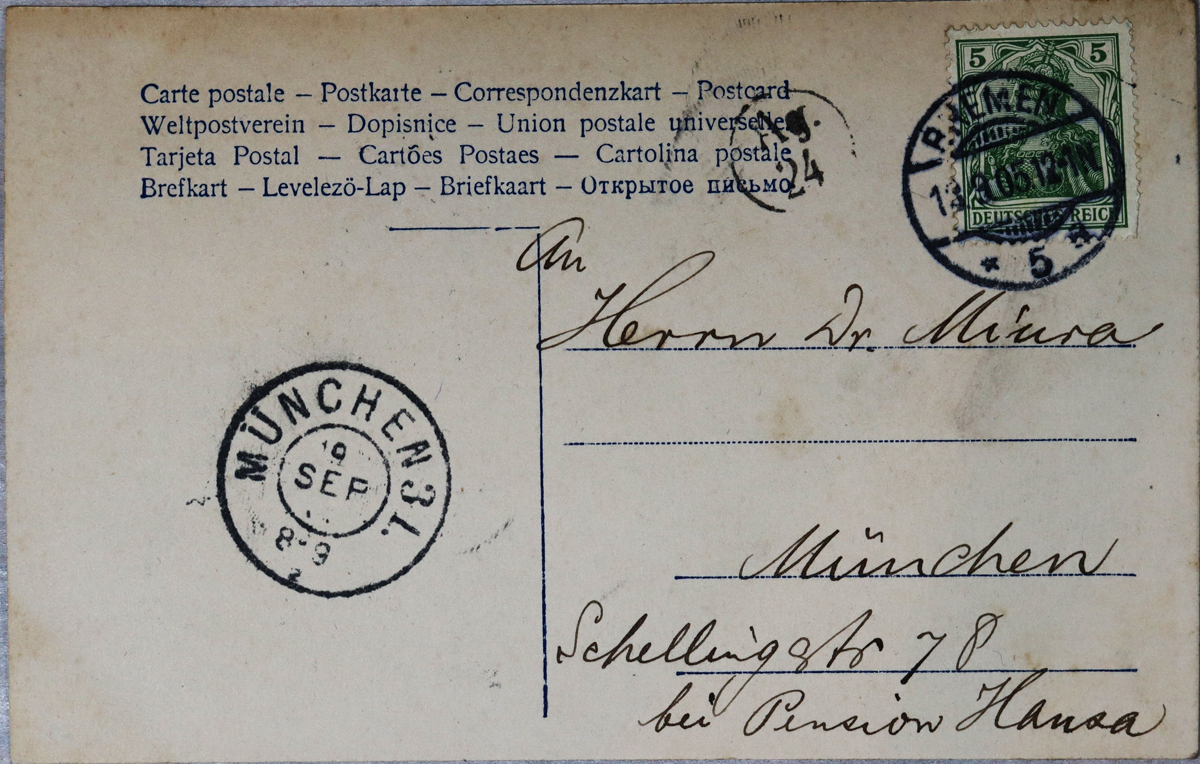 Carte postale – Postkarte – Correspondenzkart – Postcard
Weltpostverein – Dopisnice – Union postale universelle
Tarjeta Postal — Cartões Postaes — Cartolina postale
Brefkart – Levelező-Lap – Briefkaart – Открытое письмо
5 5
DEUTSCHES REICH
BREMEN
9.05.12-1N
* 5 d
Ag.
24
An
Herrn Dr. Miura
München
Schellingstr 78
bei Pension Hansa
MÜNCHEN 31.
19
SEP
8-9